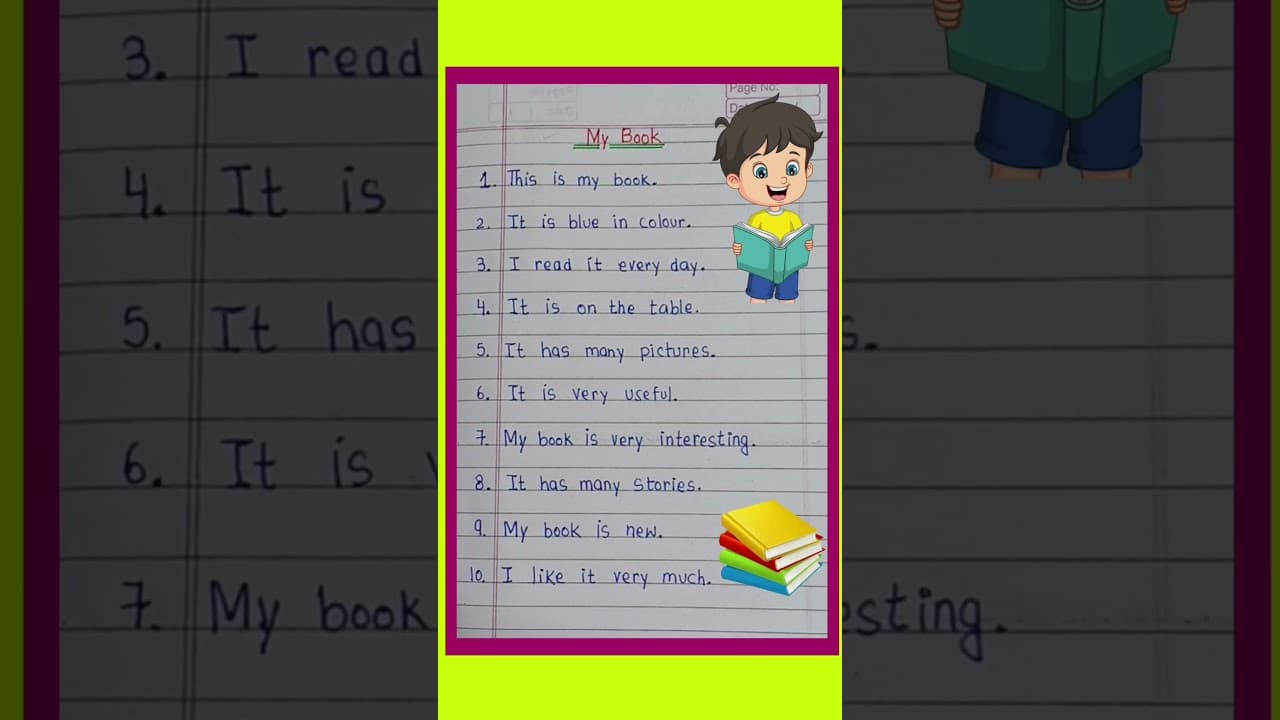 Page No.
My Book
1. This is my book.
2. It is blue in colour.
3. I read it every day.
4. It is on the table.
5. It has many pictures.
6. It is very useful.
7. My book is very interesting.
8. It has many stories.
9. My book is new.
10. I like it very much.
3. I read
4. It is
5. It has
6. It is
7. My book